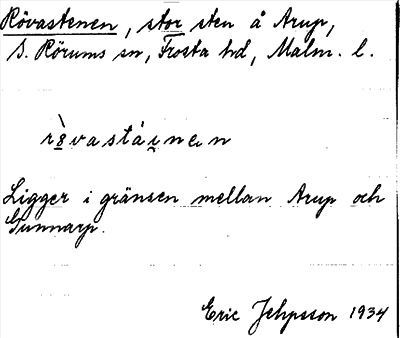 Rövastenen, stor sten å Arup,
S. Rörums sn, Frosta hd, Malm. l.
Ligger i gränsen mellan Arup och
Gunnarp.
Eric 1934